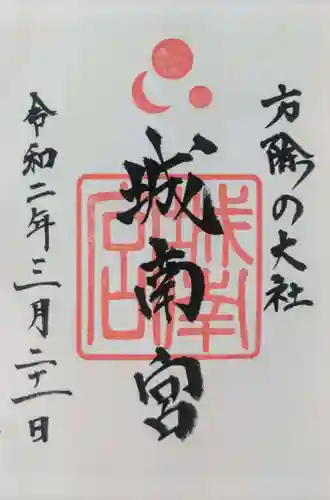 方除の大社
城南宮
令和二年三月二十一日
城南宮印